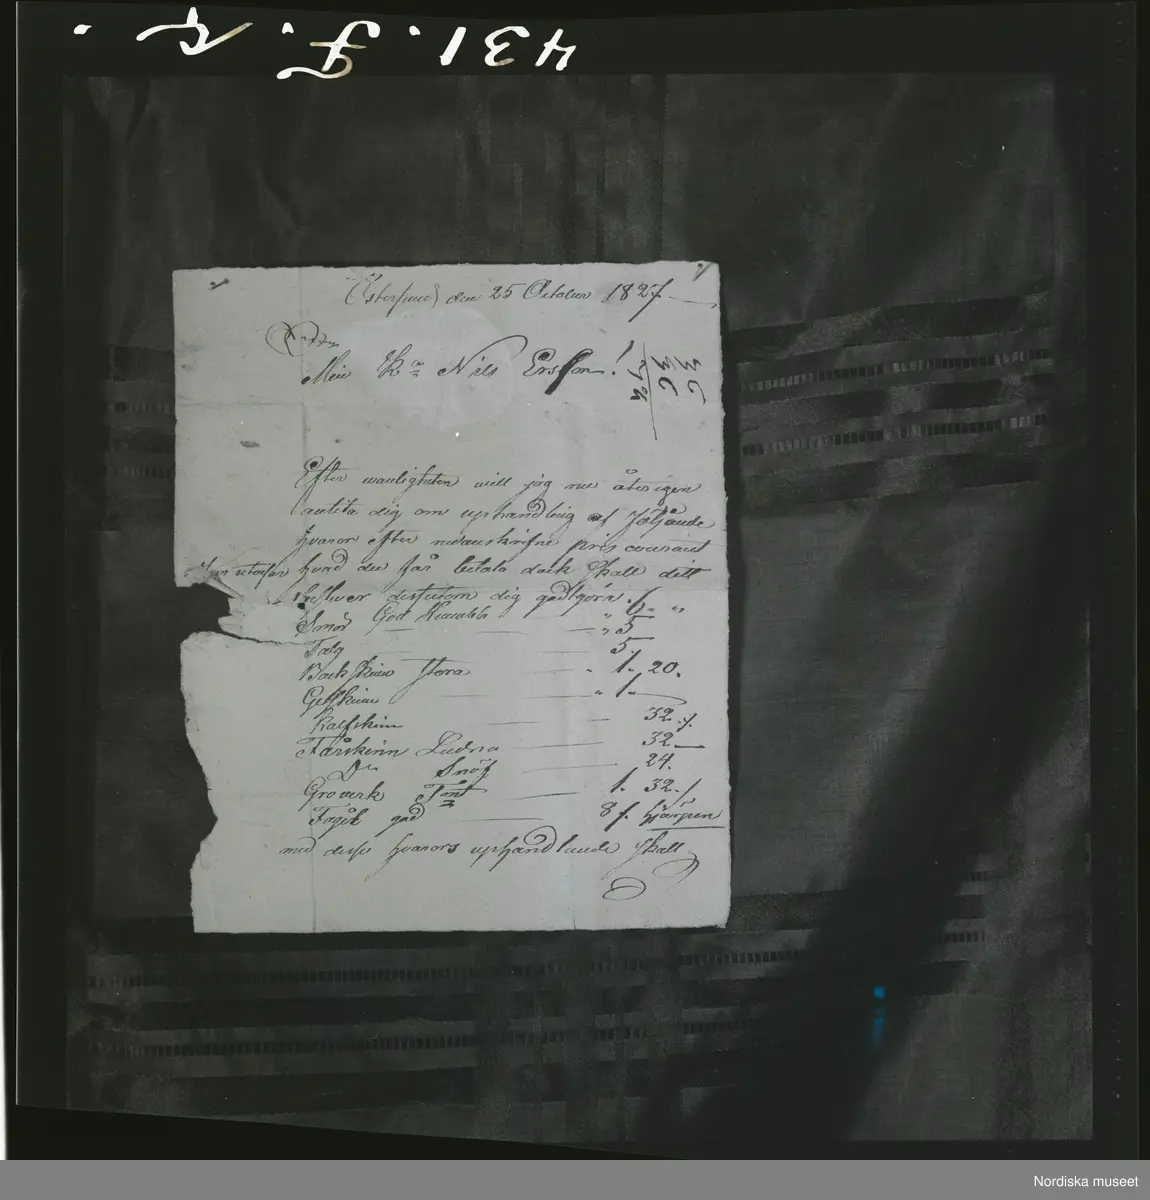 431. F. z.
Östersund den 25 October 1827
Min K Nils Ersson!
36
36
72
Efter vanligheten vill jag nu åter igen
anlita dig om uphandling af följande
hvaror efter nedanskrifne pris courant
utom hvad du får betala dock skall dett
dessutom dig godtgöras
Smör God 6 " "
Talg " 5
5.
Bockskinn stora " 1. 20.
Getskinn " 1.
Kalfskinn 32.
Fårskinn Ludna 32
Do Snöp 24.
Groverk Tont 1. 32.
Fogel god 8 f. hjärpen
med desse hvarors uphandlande skall
Nordiska museet